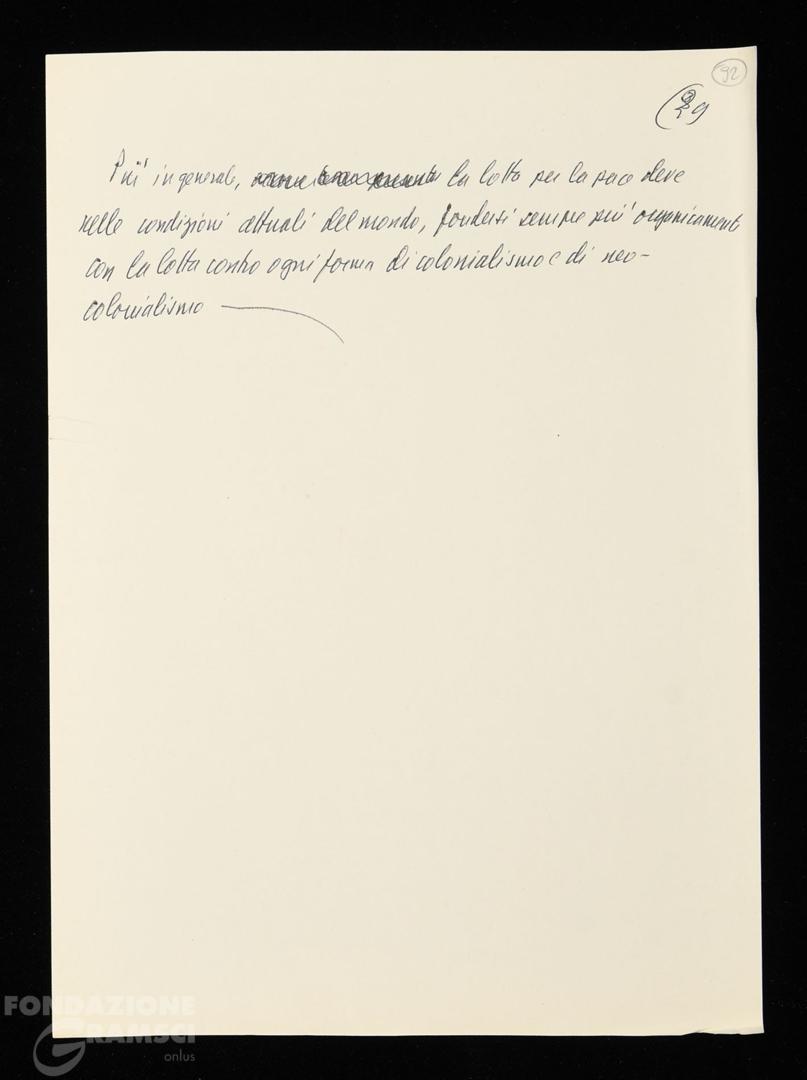 92
29
Più in generale, la lotta per la pace deve
nelle condizioni attuali del mondo, fondersi sempre più organicamente
con la lotta contro ogni forma di colonialismo e di neo-
colonialismo
FONDAZIONE
GRAMSCI
onlus